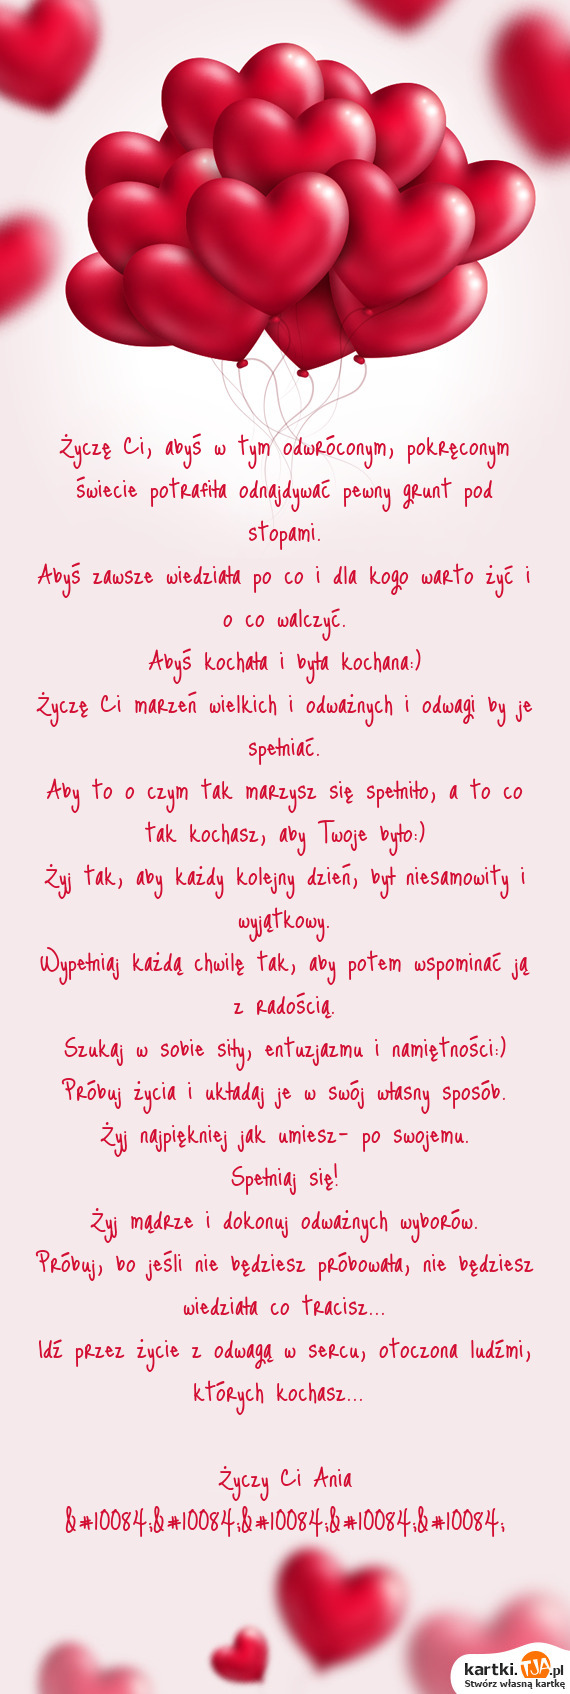 Życzę Ci, abyś w tym odwróconym, pokręconym
świecie potrafiła odnajdywać pewny grunt pod
stopami.
Abyś zawsze wiedziała po co i dla kogo warto żyć i
o co walczyć.
Abyś kochała i była kochana:)
Życzę Ci marzeń wielkich i odważnych i odwagi by je
spełniać.
Aby to o czym tak marzysz się spełniło, a to co
tak kochasz, aby Twoje było:)
Żyj tak, aby każdy kolejny dzień, był niesamowity i
wyjątkowy.
Wypełniaj każdą chwilę tak, aby potem wspominać ją
z radością.
Szukaj w sobie siły, entuzjazmu i namiętności:)
Próbuj życia i układaj je w swój własny sposób.
Żyj najpiękniej jak umiesz- po swojemu.
Spełniaj się!
Żyj mądrze i dokonuj odważnych wyborów.
Próbuj, bo jeśli nie będziesz próbowała, nie będziesz
wiedziała co tracisz...
Idź przez życie z odwagą w sercu, otoczona ludźmi,
których kochasz...
Życzy Ci Ania
&#10084;&#10084;&#10084;&#10084;&#10084;
kartki.TJA.pl
Stwórz własną kartkę